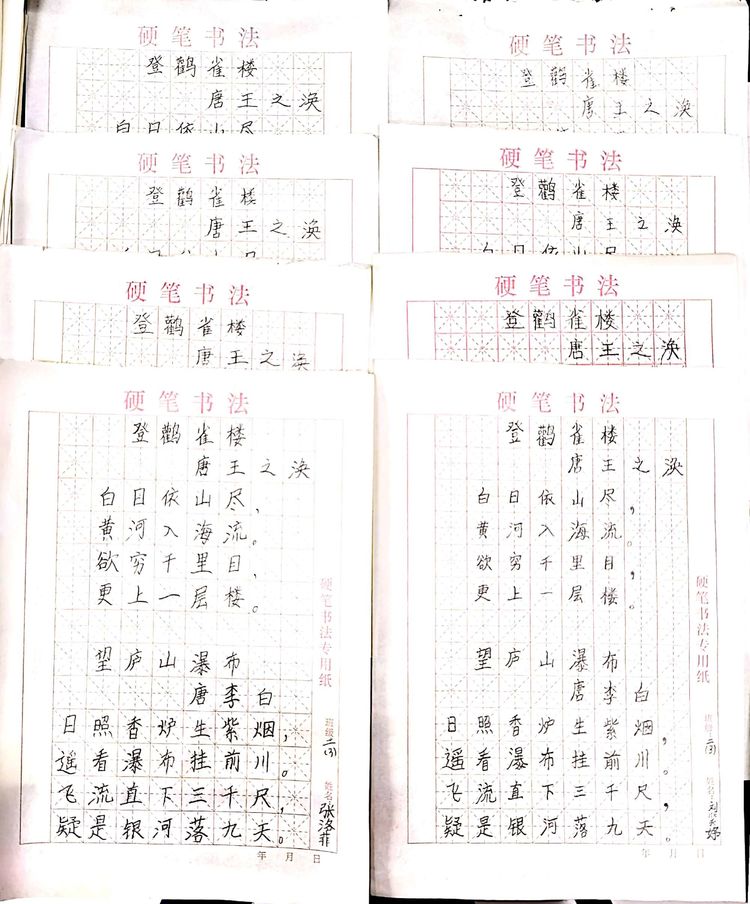 硬笔书法
登鹳雀楼
唐王之涣
白日依山尽
硬笔书法
登鹳雀楼
唐王之涣
硬笔书法
登鹳雀楼
唐王之涣
硬笔书法
登鹳雀楼
唐王之涣
白日依山尽,
黄河入海流。
欲穷千里目,
更上一层楼。
望庐山瀑布
唐李白
日照香炉生紫烟,
遥看瀑布挂前川。
飞流直下三千尺,
疑是银河落九天。
硬笔书法专用纸
班级 二(3)
姓名 张洛菲
年 月 日
硬笔书法
登鹳雀楼
唐王之涣
硬笔书法
登鹳雀楼
唐王之涣
白日依山尽
硬笔书法
登鹳雀楼
唐王之涣
硬笔书法
登鹳雀楼
唐王之涣
白日依山尽,
黄河入海流。
欲穷千里目,
更上一层楼。
望庐山瀑布
唐李白
日照香炉生紫烟,
遥看瀑布挂前川。
飞流直下三千尺,
疑是银河落九天。
硬笔书法专用纸
班级 二(3)
姓名
年 月 日